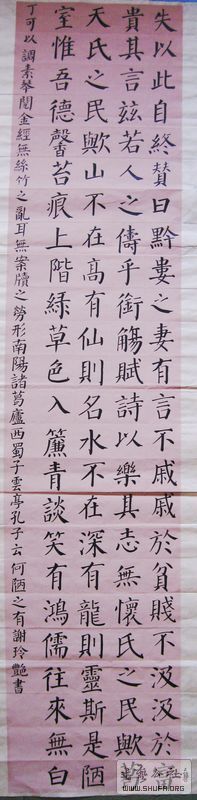 失以此自終贊曰黔婁之妻有言不戚戚於貧賤不汲汲於富
貴其言茲若人之儔乎銜觴賦詩以樂其志無懷氏之民歟葛
天氏之民歟山不在高有仙則名水不在深有龍則靈斯是陋
室惟吾德馨苔痕上階綠草色入簾青談笑有鴻儒往來無白
丁可以調素琴閱金經無絲竹之亂耳無案牘之勞形南陽諸葛廬西蜀子雲亭孔子云何陋之有謝玲艷書
WWW.SHUFA.ORG